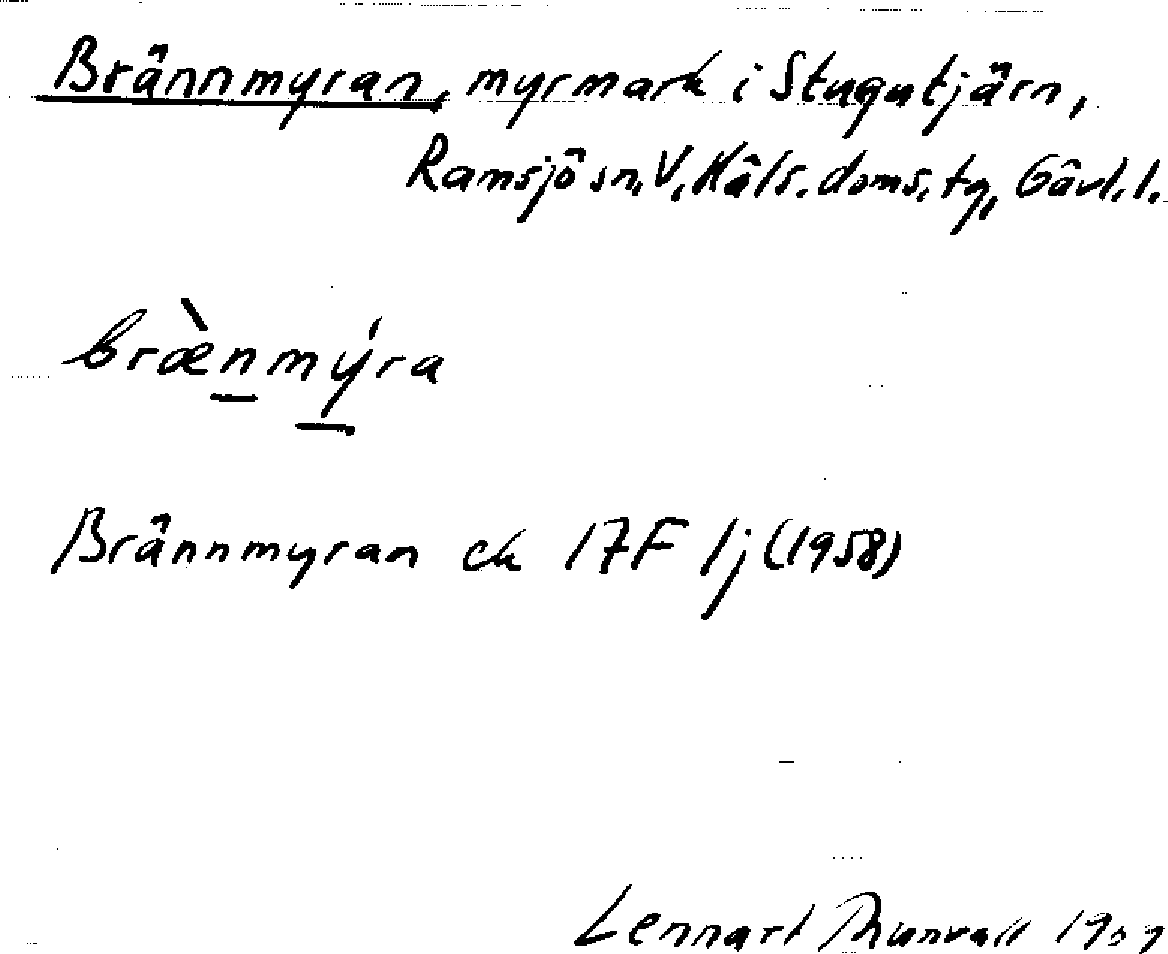 Brännmyran, myrmark i Stugutjärn,
Ramsjö sn, V. Häls. doms. tg, Gävl. l.
brænmýra
Brännmyran ek 17F 1j (1958)
Lennart